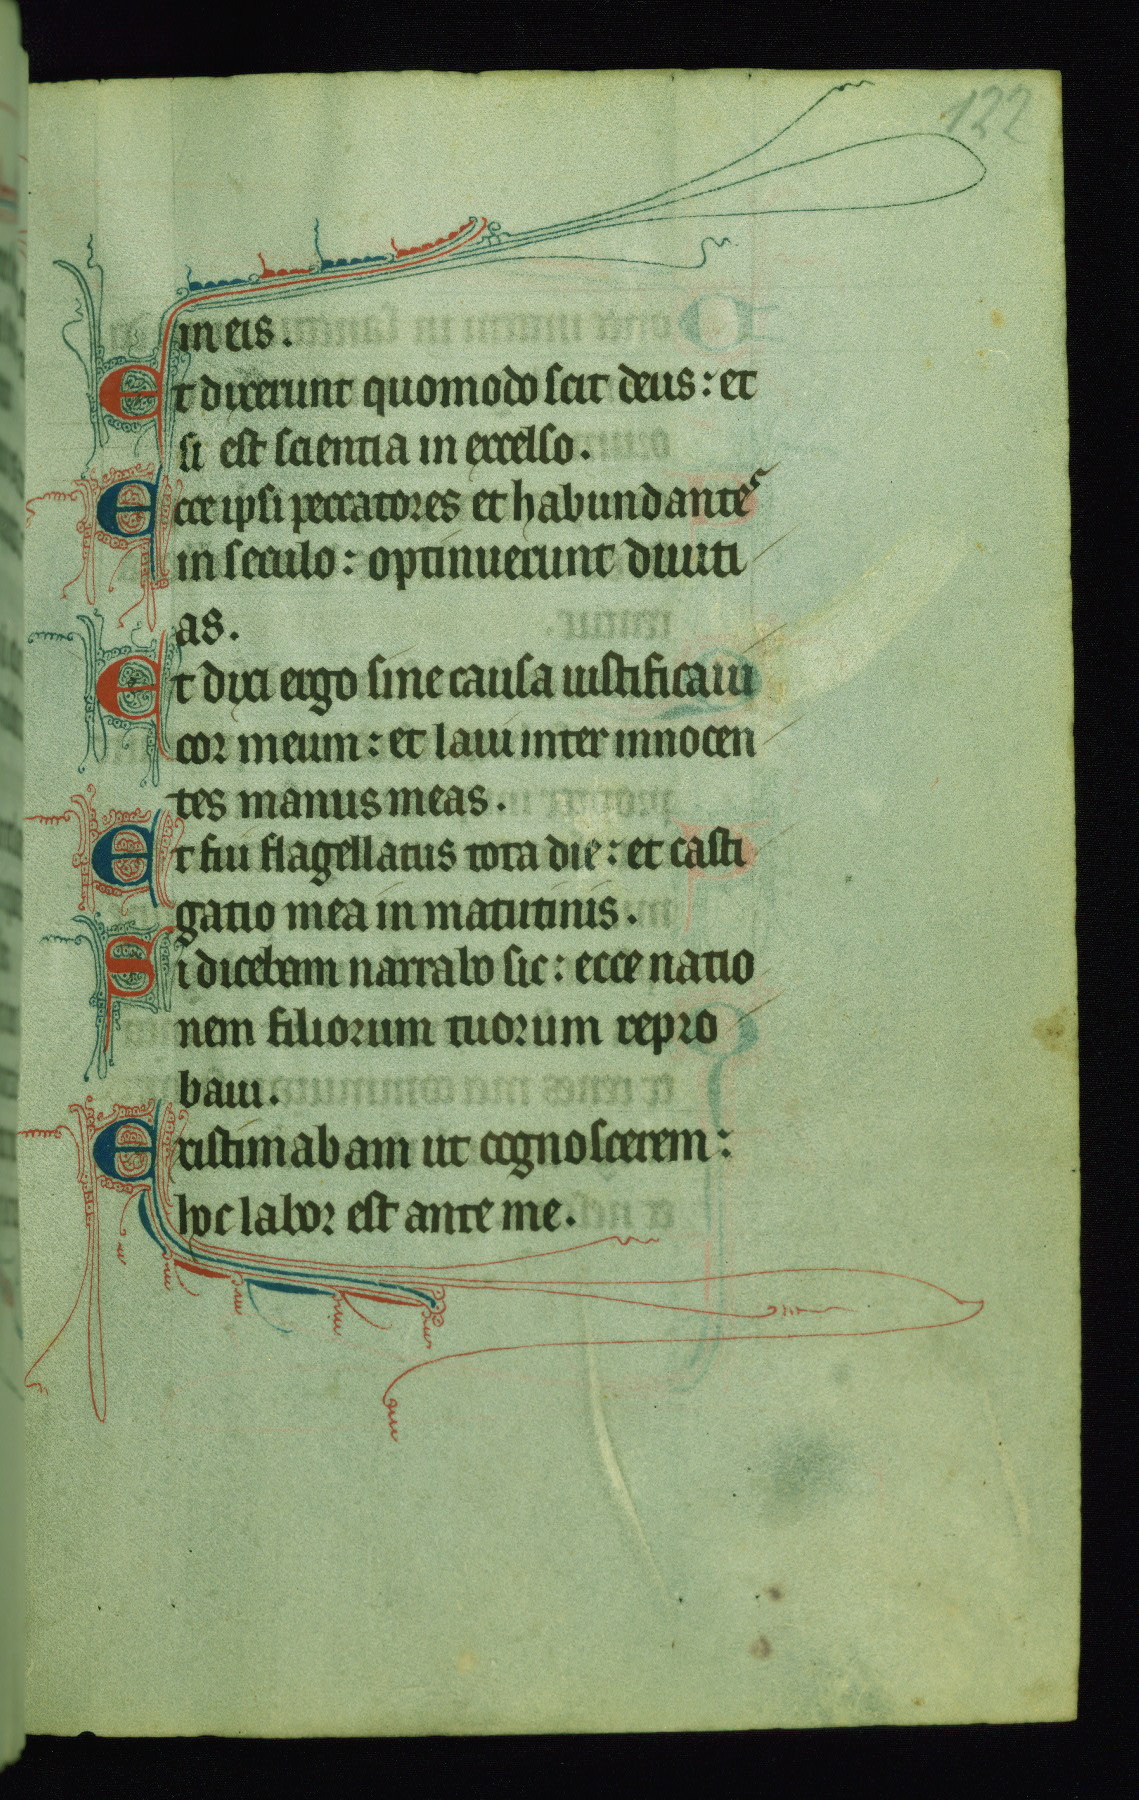 122
in eis.
Et dixerunt quomodo scit deus: et
si est scientia in excelso.
Ecce ipsi peccatores et habundantes
in seculo: optinuerunt diuiti
as.
Et dixi ergo sine causa iustificaui
cor meum: et laui inter innocen
tes manus meas.
Et fui flagellatus tota die: et casti
gatio mea in matutinis.
Si dicebam narrabo sic: ecce natio
nem filiorum tuorum repro
baui.
Existimabam ut cognoscerem:
hoc labor est ante me.